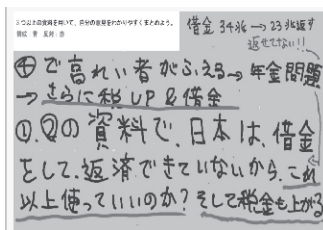 3つ以上の資料を用いて、自分の意見をわかりやすくまとめよう。
賛成：青　反対：赤
借金 34兆→23兆返す
返せてない!!
④で高れい者がふえる→年金問題
→さらに税UP&借金
①、②の資料で、日本は、借金
をして、返済できていないから、これ
以上使っていいのか？そして税金も上がる